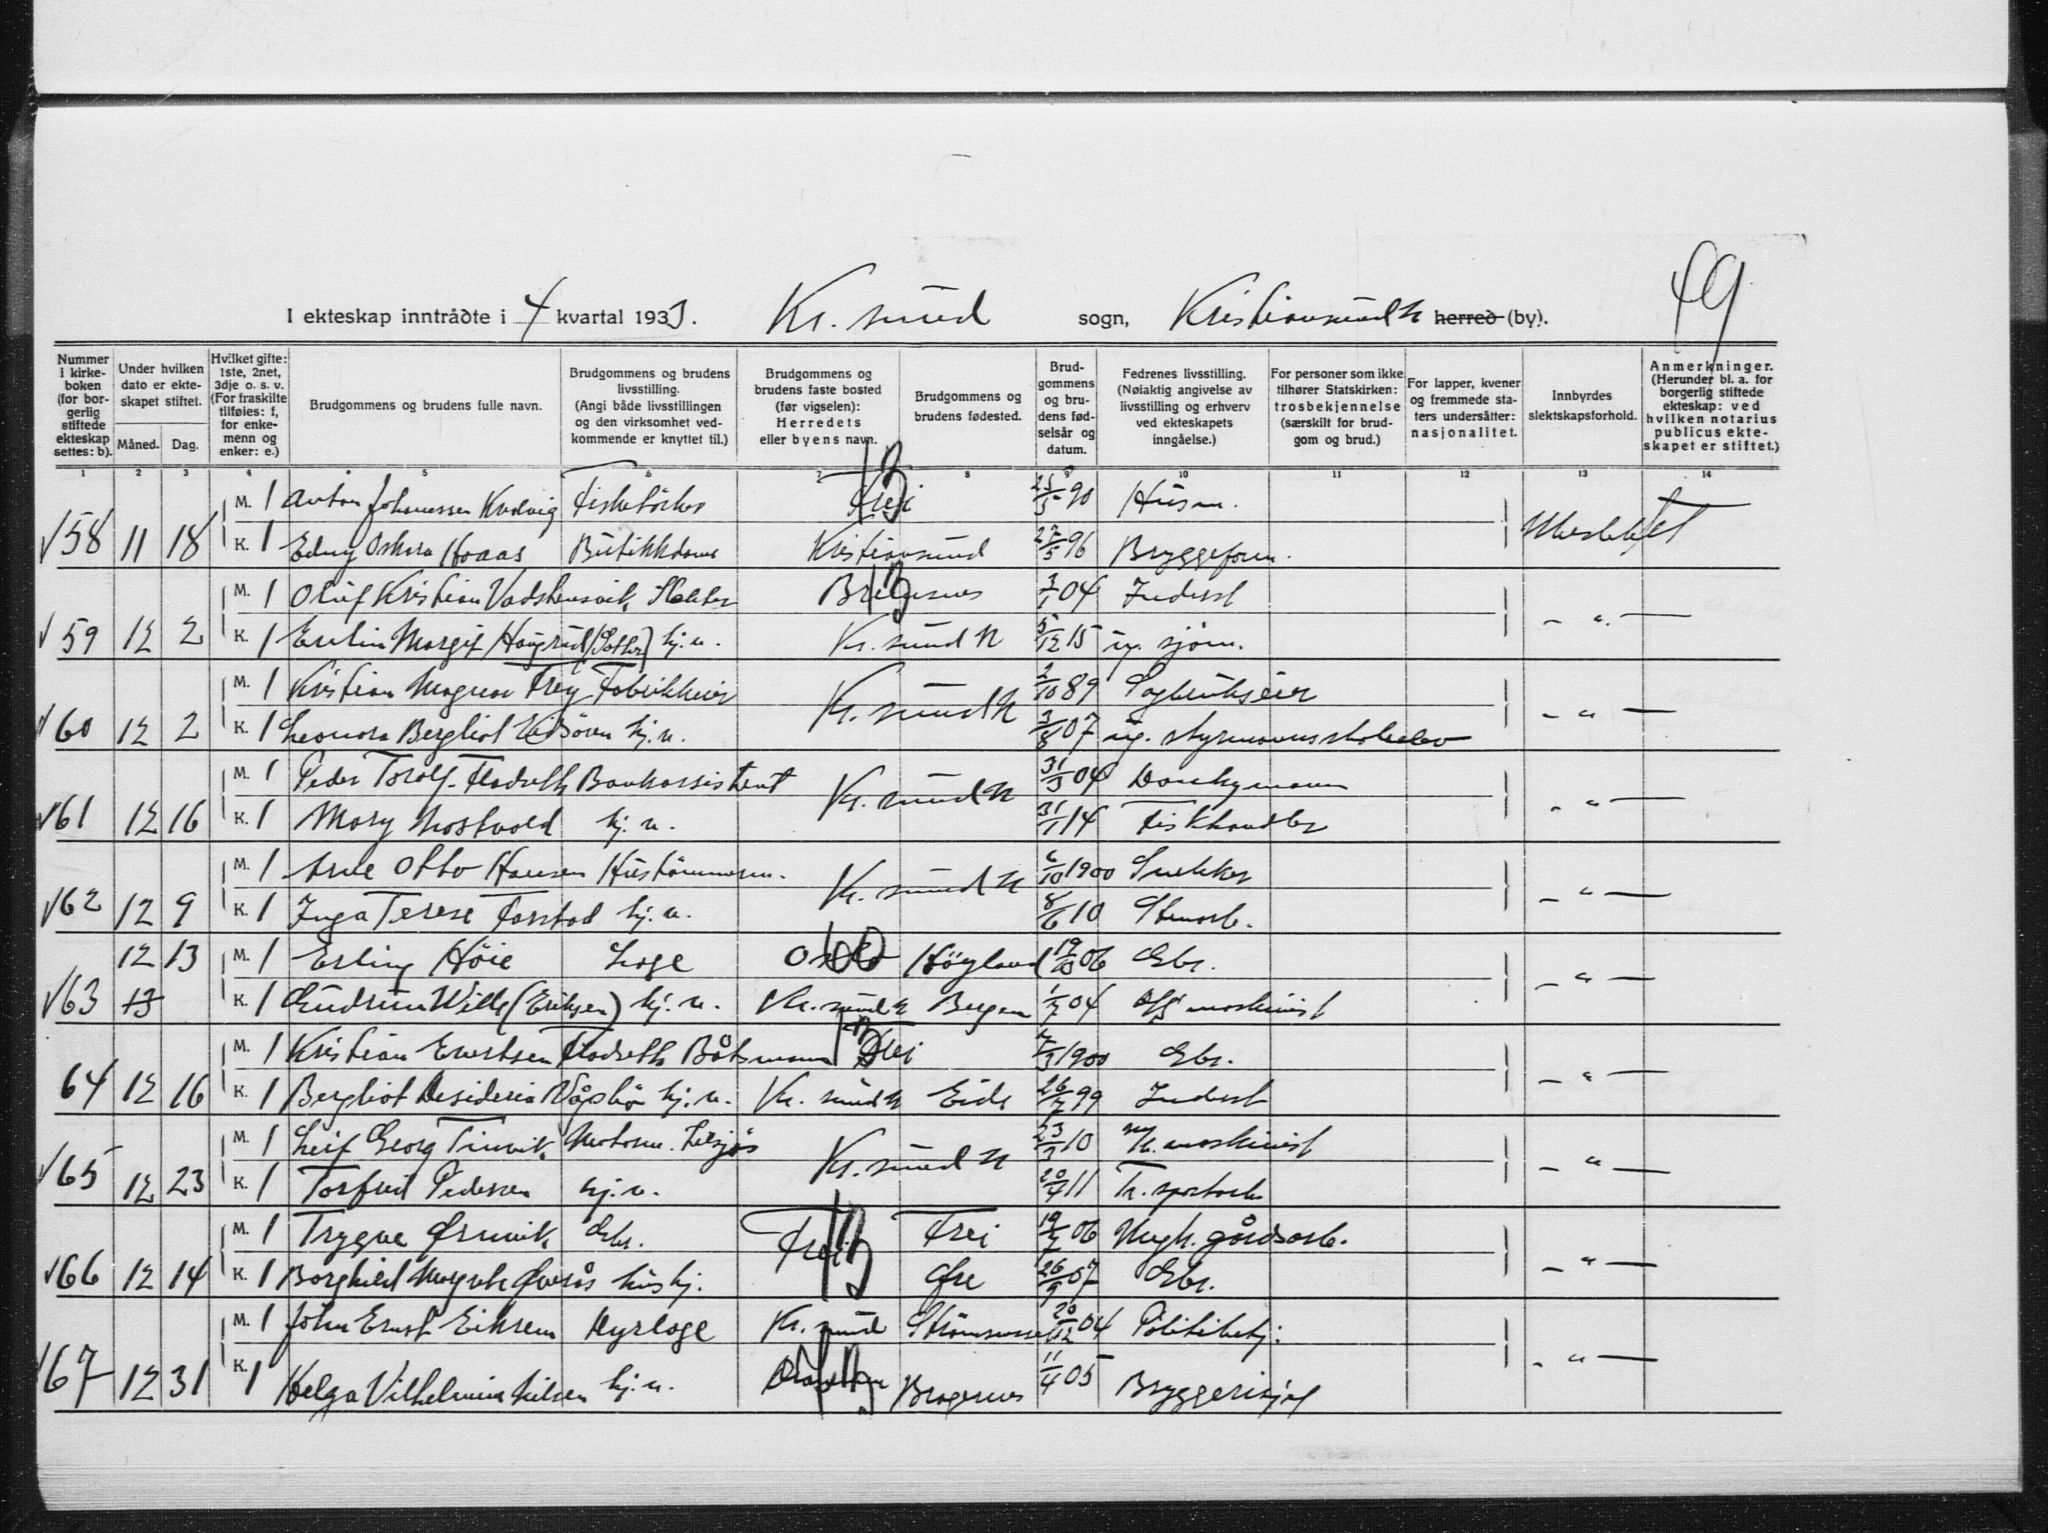 49
I ekteskap inntrådte i 4 kvartal 1933. Kr. sund sogn, Kristiansund N herred (by).
Nummer i kirkeboken (for borgerlig stiftede ekteskap settes: b).
Under hvilken dato er ekteskapet stiftet.
Måned. Dag.
Hvilket gifte: 1ste, 2net, 3dje o. s. v. (For fraskilte tilføies: f, for enkemenn og enker: e.)
Brudgommens og brudens fulle navn.
Brudgommens og brudens livsstilling. (Angi både livsstillingen og den virksomhet vedkommende er knyttet til.)
Brudgommens og brudens faste bosted (før vigselen): Herredets eller byens navn.
Brudgommens og brudens fødested.
Brudgommens og brudens fødselsår og datum.
Fedrenes livsstilling. (Nøiaktig angivelse av livsstilling og erhverv ved ekteskapets inngåelse.)
For personer som ikke tilhører Statskirken: trosbekjennelse (særskilt for brudgom og brud.)
For lapper, kvener og fremmede staters undersåtter: nasjonalitet.
Innbyrdes slektskapsforhold.
Anmerkninger. (Herunder bl. a. for borgerlig stiftede ekteskap: ved hvilken notarius publicus ekteskapet er stiftet.)
1 2 3 4 5 6 7 8 9 10 11 12 13 14
M. 1 Anton Johannessen Kvalvig Fisketørker Frei 25/5 90 Husm.
58 11 18 K. 1 Edny Oskara Haaas Butikkdame Kristiansund 27/5 96 Bryggeform. Ubeslektet
M. 1 Oluf Kristian Slakter Bremsnes 3/1 04 Inderst
59 12 2 K. 1 Margit Haugrud kj.u. Kr. sund N 5/12 15 ug. sjøm. - " -
M. 1 Kristian Magnar Frey Fabrikkeier 2/10 89 Sagbrukseier
60 12 2 K. 1 Leonora Bergliot kj.u. Kr. sund N 3/8 07 ug. styrmannsskoleelev - " -
M. 1 Peder Torolf Flatseth Bankassistent 31/3 04 Donkymann
61 12 16 K. 1 Mary kj.u. Kr. sund N 31/1 14 Fiskhandler - " -
M. 1 Arne Otto Hansen Hustømmerm. 6/10 1900 Snekker
62 12 9 K. 1 Inga Terese Farstad kj.u. Kr. sund N 8/6 10 Stuearb. - " -
12 13 M. 1 Erling Høie Læge Oslo Høyland 19/10 06 Gbr.
63 13 K. 1 Gudrun Wille (Eriksen) kj.u. Kr. sund N Bergen 1/7 04 maskinist - " -
M. 1 Kristian Evertsen Flatseth Båtsmann Frei 1900 Gbr.
64 12 16 K. 1 Bergliot Desideria Vågsbø kj.u. Kr. sund N Eide 26/7 99 Inderst - " -
M. 1 Leif Georg 23/3 10 maskinist
65 12 23 K. 1 Torfrid Pedersen kj.u. Kr. sund N 20/4 11 - " -
M. 1 Trygve Ørnvik Gbr. Frei Frei 19/7 06 gårdsarb.
66 12 14 K. 1 Borghild Øverås hushj. Øre 26/9 07 Gbr. - " -
M. 1 John Ernst Eiksem Dyrlæge Kr. sund Strømsnes 20/12 04 Politibetj.
67 12 31 K. 1 Helga Vilhelmine Nilsen kj.u. Bragernes 11/4 05 - " -